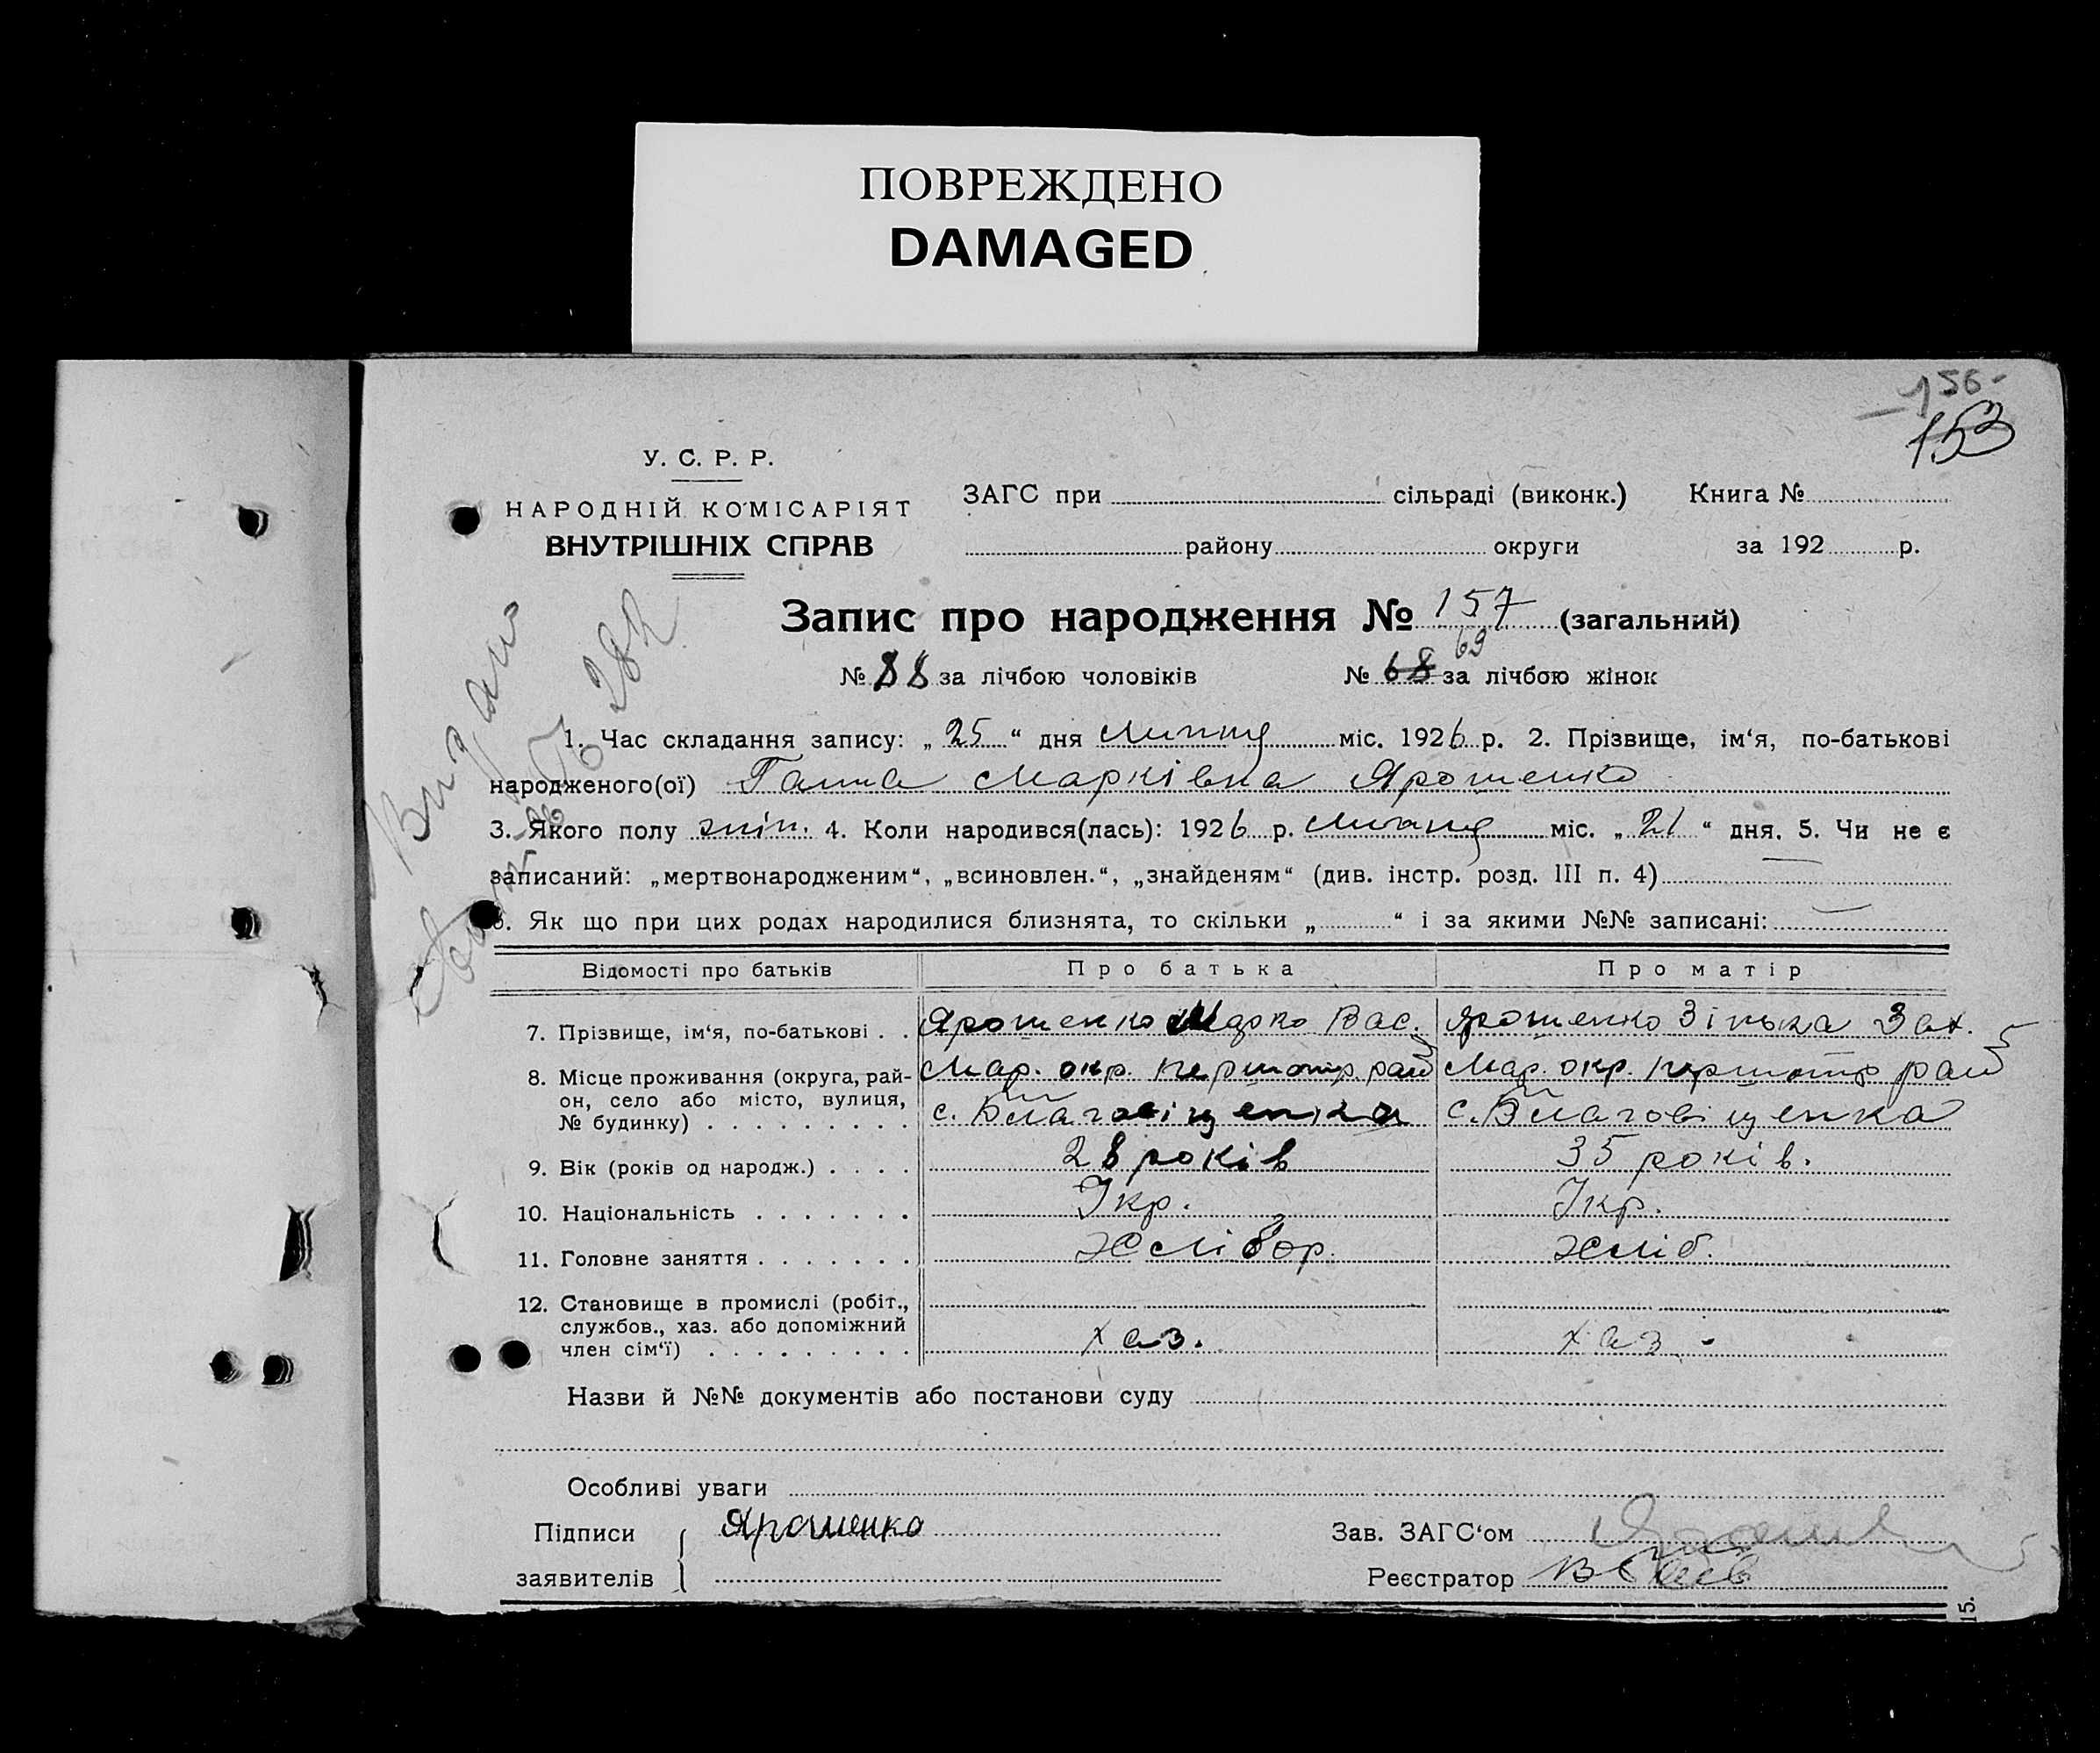 ПОВРЕЖДЕНО
DAMAGED
156-
153
У. С. Р. Р.
НАРОДНІЙ КОМІСАРІЯТ
ВНУТРІШНІХ СПРАВ
ЗАГС при сільраді (виконк.) Книга №
району округи за 192 р.
Запис про народження № 157 (загальний)
69
№ 88 за лічбою чоловіків № 68 за лічбою жінок
Видано
282
1. Час складання запису: „25“ дня Липня міс. 1926 р. 2. Прізвище, ім‘я, по-батькові
народженого(ої) Ганна Марківна Ярошенко
3. Якого полу жін. 4. Коли народився(лась): 1926 р. Липня міс. „21“ дня. 5. Чи не є
записаний: „мертвонародженим“, „всиновлен.“, „знайденям“ (див. інстр. розд. III п. 4) —
6. Як що при цих родах народилися близнята, то скільки „ “ і за якими №№ записані: —
Відомості про батьків Про батька Про матір
7. Прізвище, ім‘я, по-батькові . . Ярошенко Марко Вас. Ярошенко Зінька Зах.
8. Місце проживання (округа, рай- Мар. окр. Першотр. рай Мар. окр. Першотр рай
он, село або місто, вулиця, с. Благовіщенка с. Благовіщенка
№ будинку) . . . . . . . . .
9. Вік (років од народж.) . . . . 28 років 35 років.
10. Національність . . . . . . . Укр. Укр.
11. Головне заняття . . . . . . . Хлібор. Хліб.
12. Становище в промислі (робіт.,
службов., хаз. або допоміжний
член сім‘ї) . . . . . . . . . хаз. хаз.
Назви й №№ документів або постанови суду
Особливі уваги
Підписи Ярошенко Зав. ЗАГС‘ом
заявителів Реєстратор
15.